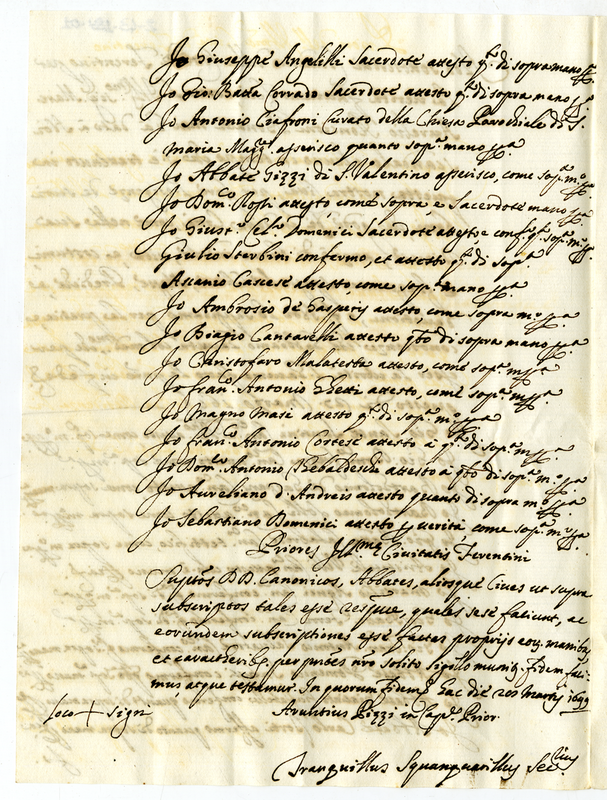 Io Giuseppe Angelilli Sacerdote attesto q.to di sopra mano pp.a
Io Gio: Batta Corrado Sacerdote attesto q.to di sopra mano pp.a
Io Antonio Ciafroni Curato della Chiesa Parochiale di S.
Maria Magg.re asserisco quanto sop.a mano pp.a
Io Abbate Gizzi di S. Valentino asserisco, come sop.a m.o pp.a
Io Dom.co Rossi attesto, come sopra, e Sacerdote mano pp.a
Io Giust.o Domenici Sacerdote attesto e conf.o q.to sop.a m.o pp.a
Giulio Sterbini confermo, et attesto q.to di sop.a
Ascanio Cascese attesto, come sop.a mano pp.a
Io Ambrosio de Gasperis attesto, come sopra m.o pp.a
Io Biagio Cantarelli attesto q.to di sopra mano pp.a
Io Christofaro Malatesta attesto, come sop.a m.o pp.a
Io Fran.co Antonio Ghetti attesto, come sop.a m.o pp.a
Io Magno Masi attesto q.to di sop.a m.o pp.a
Io Fran.co Antonio Cortese attesto a q.to di sop.a m.o pp.a
Io Dom.co Antonio Thebaldeschi attesto a q.to di sop.a m.o pp.a
Io Aureliano d'Andreis attesto quanto di sopra m.o pp.a
Io Sebastiano Domenici attesto p verità, come sop.a m.o pp.a
Priores Ill.mae Civitatis Ferentini
Supto͂s DD. Canonicos, Abbates, aliosque Cives ut supra
subscriptos tales esse, quales sese faciunt, ac
eorundem subscriptiones esse factas proprijs eor. manibus
et caracterib. per pn͂tes n͂ro solito sigillo munit. fidem faci-
mus, atque testamur. In quorum fidem hac die Martij 1699
Loco + signi Aruntius Pizzi in Cap. Prior.
Tranquillus Squanquarillus Sec.rius